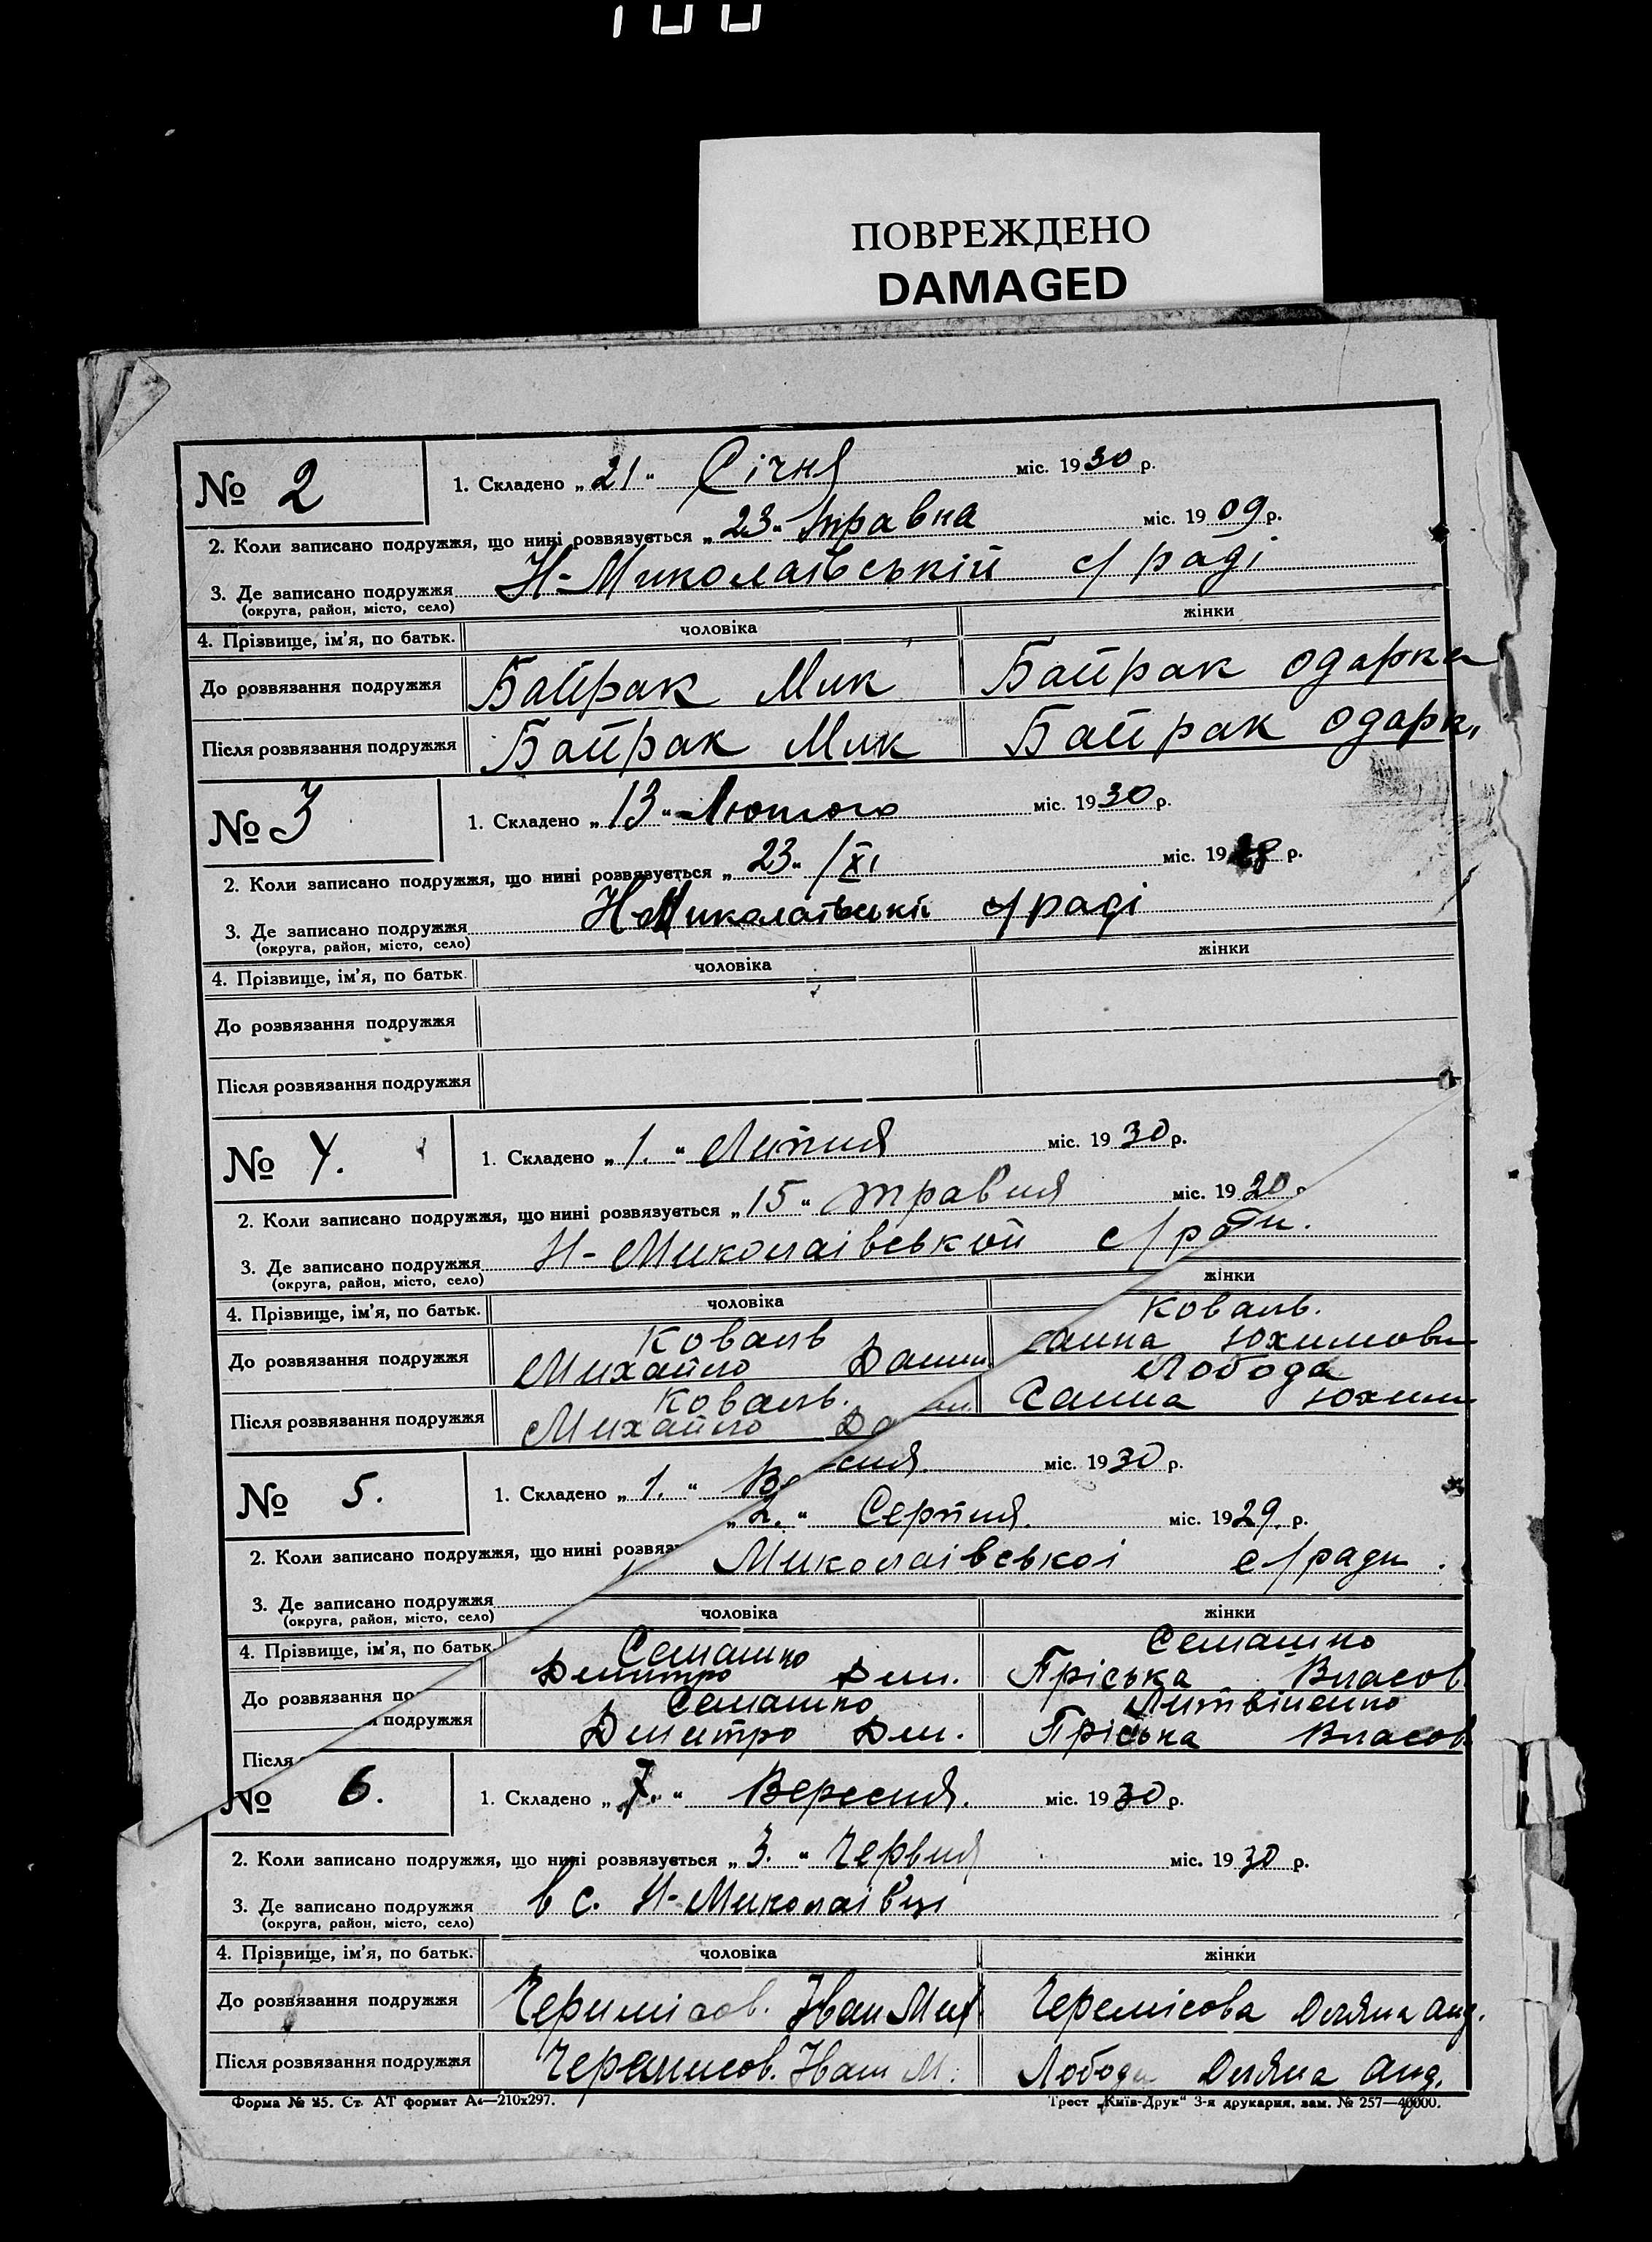 100
ПОВРЕЖДЕНО
DAMAGED
№ 2
1. Складено „21“ Січня міс. 1930 р.
2. Коли записано подружжя, що нині розвязується „23“ травня міс. 1909 р.
3. Де записано подружжя Н-Миколаївській с/раді
(округа, район, місто, село)
4. Прізвище, ім’я, по батьк. чоловіка жінки
До розвязання подружжя Байрак Мик Байрак Одарка
Після розвязання подружжя Байрак Мик Байрак Одарк.
№ 3
1. Складено „13“ Лютого міс. 1930 р.
2. Коли записано подружжя, що нині розвязується „23“ /XI міс. 19 р.
3. Де записано подружжя Н-Миколаївській с/раді
(округа, район, місто, село)
4. Прізвище, ім’я, по батьк. чоловіка жінки
До розвязання подружжя
Після розвязання подружжя
№ 4.
1. Складено „1.“ Липня міс. 1930 р.
2. Коли записано подружжя, що нині розвязується „15“ травня міс. 1920 р
3. Де записано подружжя Н-Миколаівськой с/ради.
(округа, район, місто, село)
4. Прізвище, ім’я, по батьк. чоловіка жінки
Коваль Коваль.
До розвязання подружжя Михайло Данил Ганна Юхимовн
Коваль. Лобода
Після розвязання подружжя Михайло Ганна Юхим
№ 5.
1. Складено „1.“ Вересня міс. 1930 р.
„2.“ Серпня. міс. 1929. р.
2. Коли записано подружжя, що нині розвяз
Миколаівськоі с/ради.
3. Де записано подружжя
(округа, район, місто, село)
чоловіка жінки
4. Прізвище, ім’я, по батьк.
Семашко Семашко
Дмитро Дм. Пріська Власов
До розвязання по
Семашко Литвіненко
подружжя Дмитро Дм. Пріська Власов
Після
№ 6.
1. Складено „7.“ Вересня. міс. 1930 р.
2. Коли записано подружжя, що нині розвязується „3.“ Червня міс. 1930 р.
3. Де записано подружжя в с. Н-Миколаівці
(округа, район, місто, село)
4. Прізвище, ім’я, по батьк. чоловіка жінки
До розвязання подружжя Черимісов. Іван Мих Черемісова Оляна Анд.
Після розвязання подружжя Черемисов. Іван М. Лобода Оляна Анд.
Форма № 25. Ст. АТ формат А4—210х297. Трест „Київ-Друк“ 3-я друкарня, зам. № 257—40000.